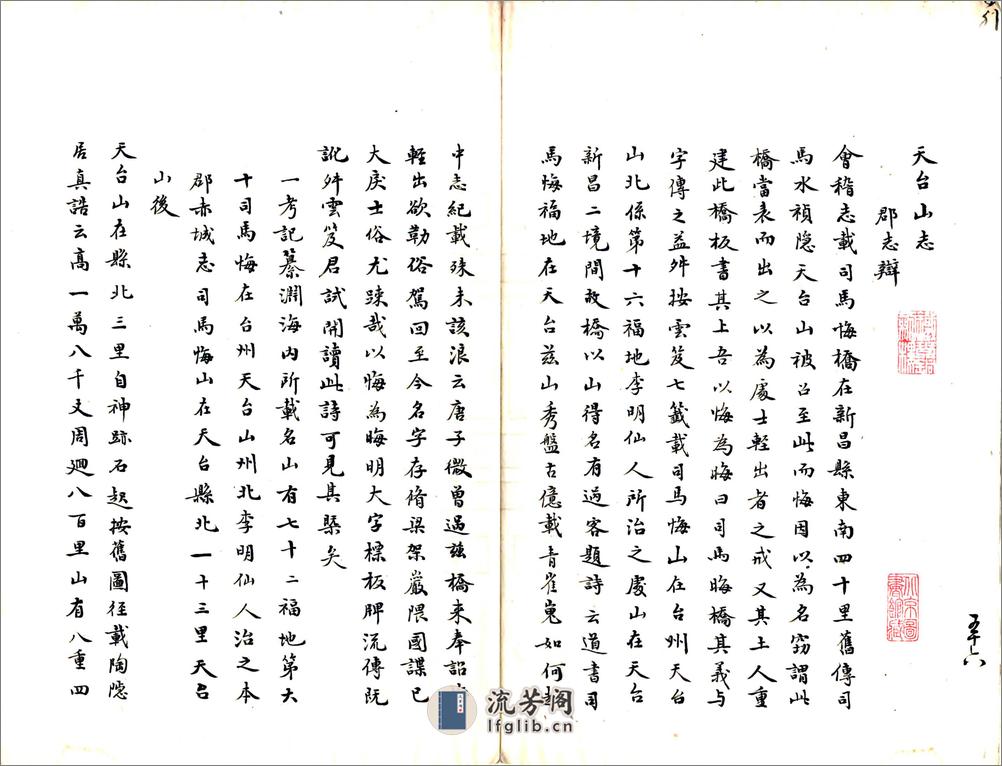 天台山志
郡志辯
會稽志載司馬悔橋在新昌縣東南四十里舊傳司
馬水禎隐天台山被召至此而悔因以為名竊謂此
橋當表而出之以為處士輕出者之戒又其土人重
建此橋板書其上吾以悔為晦曰司馬晦橋其義與
字傳之益舛按雲笈七籤載司馬悔山在台州天台
山北係第十六福地李明仙人所治之處山在天台
新昌二境間故橋以山得名有過客題詩云道書司
馬悔福地在天台兹山秀盤古億載青崔嵬如何
中志紀載殊未該浪云唐子微曾過兹橋来奉詔
輕出欲勒俗駕回至今名字存脩梁架巖隈國諜已
大戾士俗尤踈哉以悔為晦明大字標板牌流傳既
訛舛雲笈君試開讀此詩可見其槩矣
一考記纂淵海内所載名山有七十二福地第六
十司馬悔在台州天台山州北李明仙人治之本
郡赤城志司馬悔山在天台縣北一十三里天台
山後
天台山在縣北三里自神跡石起按舊圖徑載陶隐
居真誥云高一萬八千丈周廻八百里山有八重四
五十六
流芳阁
lfglib.cn